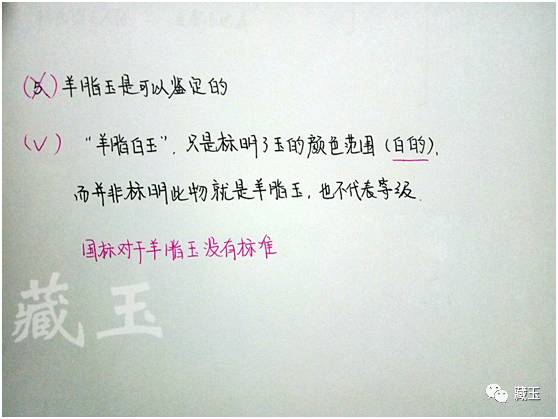 (5) 羊脂玉是可以鉴定的
(√) “羊脂白玉”,只是标明了玉的颜色范围(白的),
而并非标明此物就是羊脂玉,也不代表等级.
国标对于羊脂玉没有标准
藏玉
藏玉